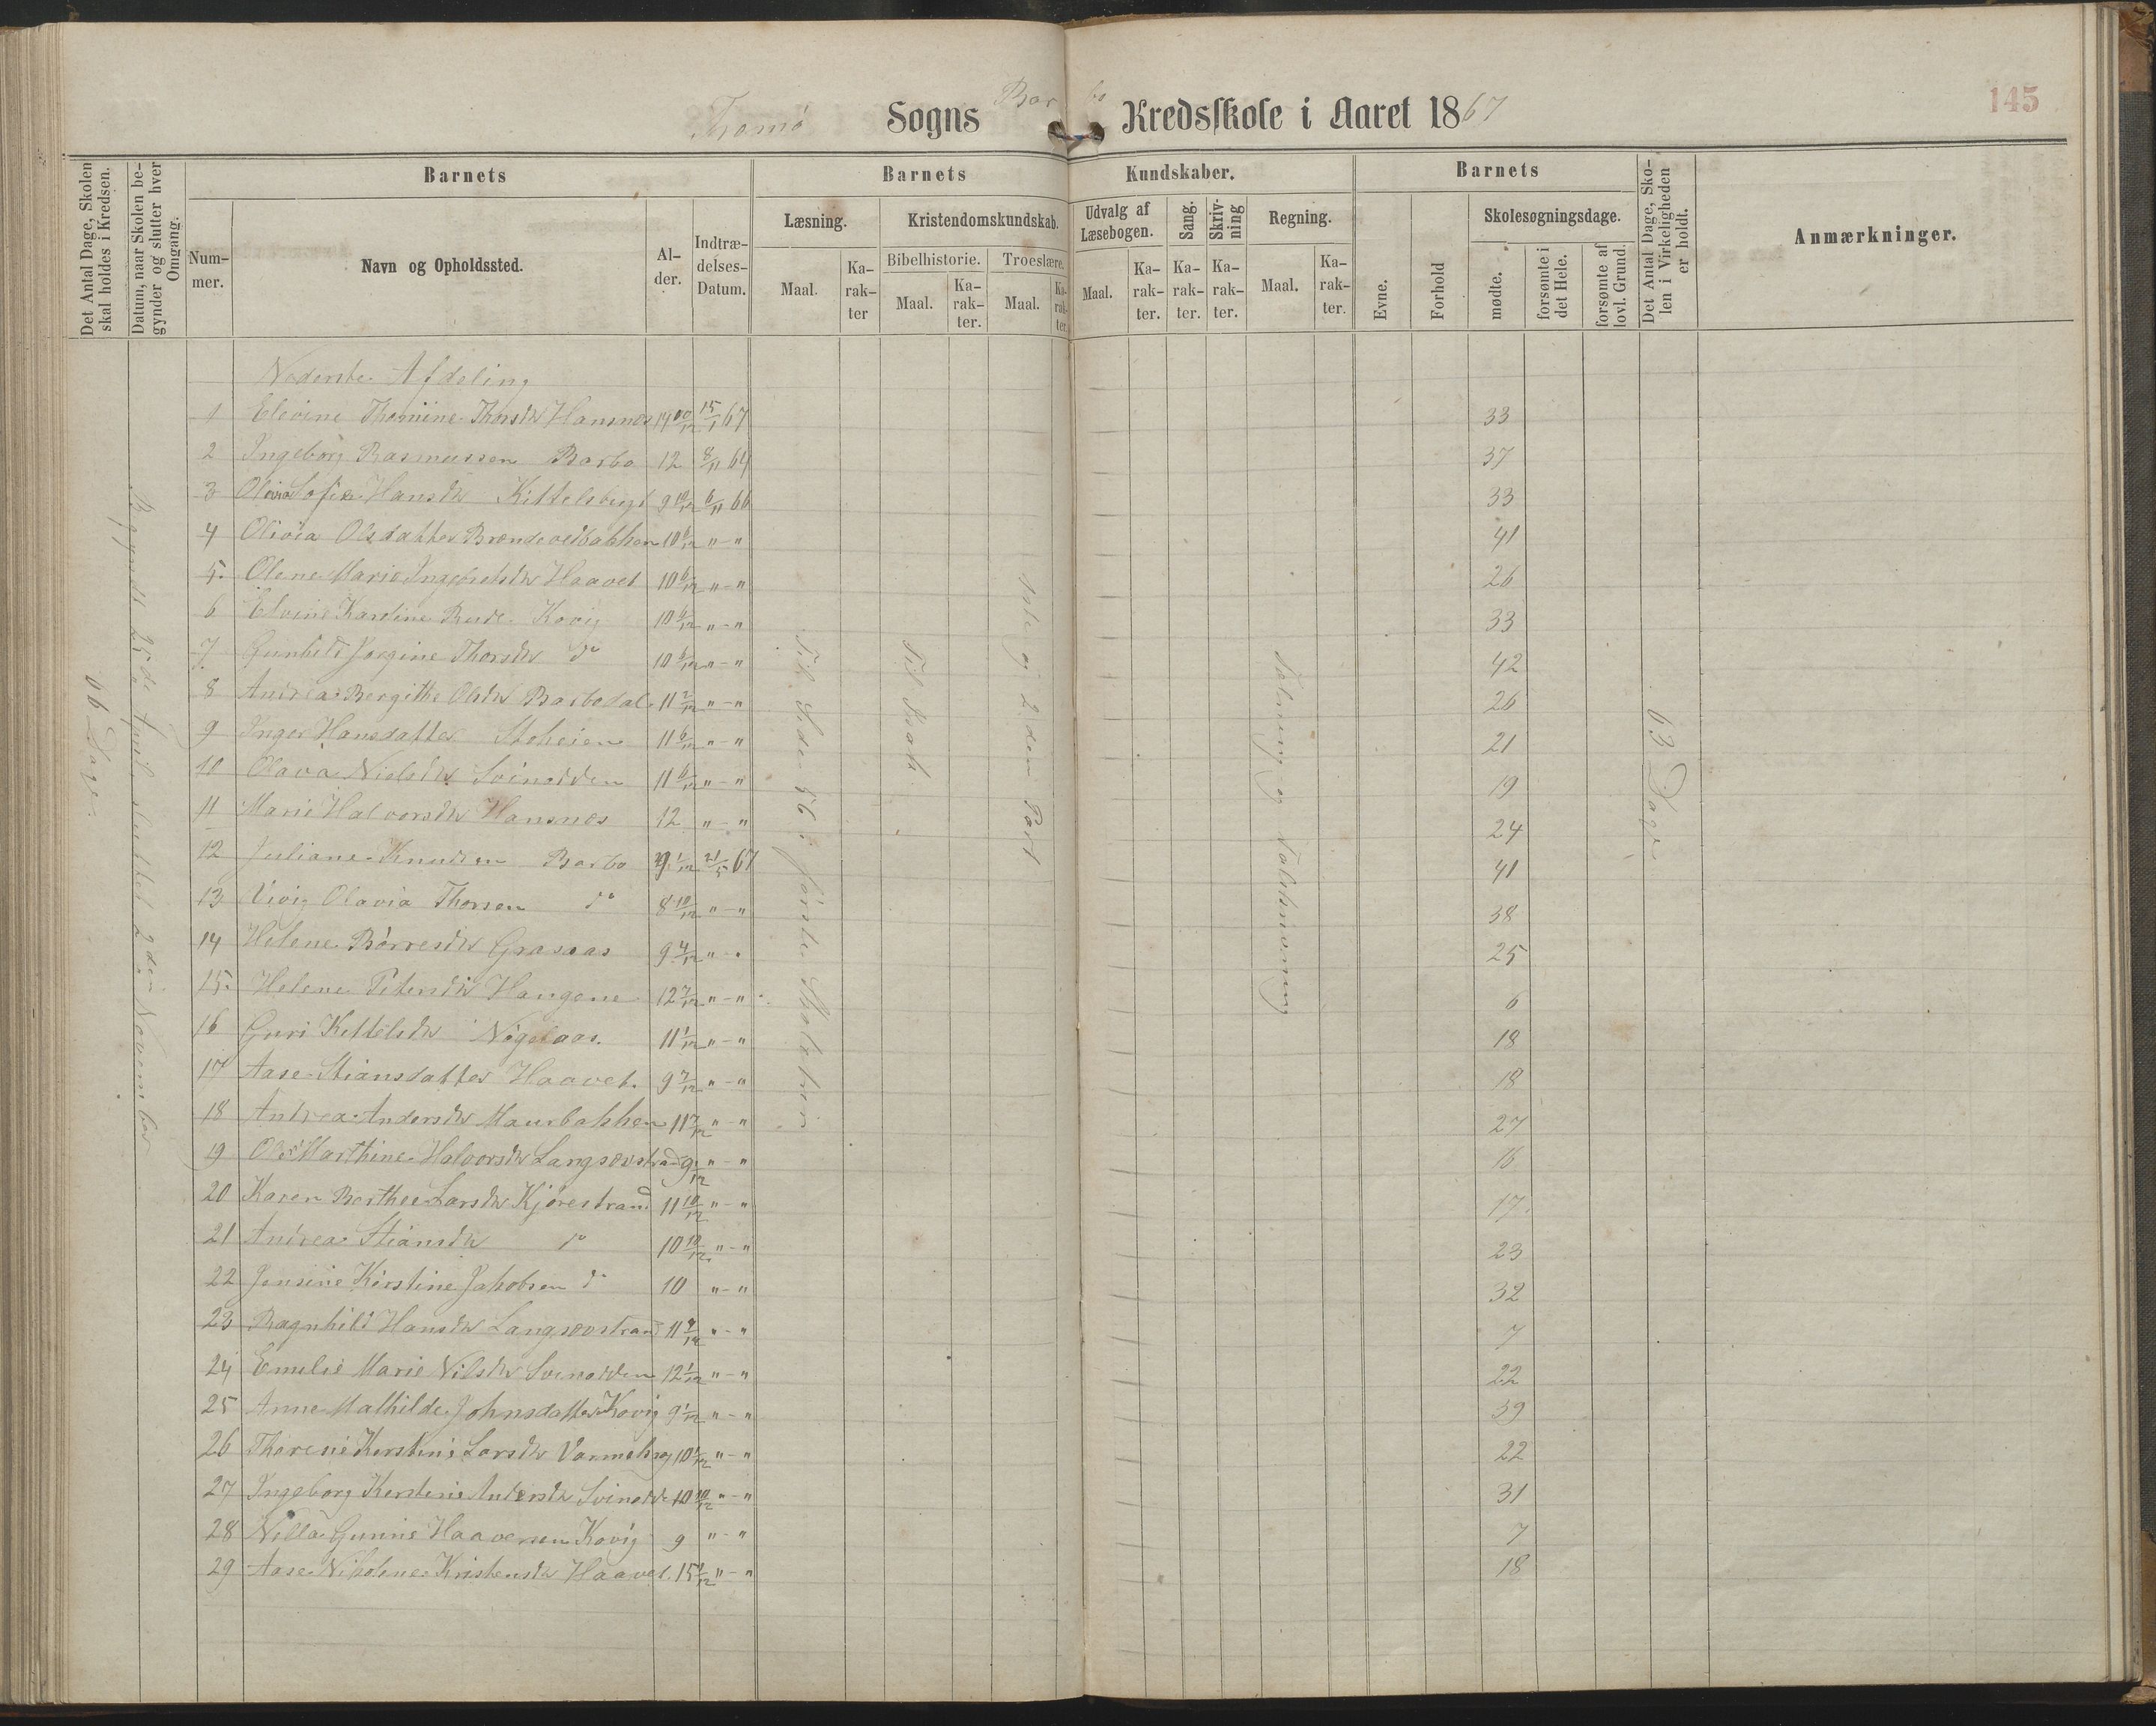 145
Tromø Sogns Barbo Kredsskole i Aaret 1867
Det Antal Dage, Skolen skal holdes i Kredsen.
Datum, naar Skolen begynder og slutter hver Omgang.
Barnets
Nummer.
Navn og Opholdssted.
Alder.
Indtrædelses-Datum.
Barnets Kundskaber.
Læsning.
Maal.
Karakter
Kristendomskundskab.
Bibelhistorie.
Maal.
Karakter.
Troeslære.
Maal.
Karakter.
Udvalg af Læsebogen.
Maal.
Karakter.
Sang.
Karakter.
Skrivning
Karakter.
Regning.
Maal.
Karakter.
Barnets
Evne.
Forhold
Skolesøgningsdage.
mødte.
forsømte i det Hele.
forsømte af lovl. Grund.
Det Antal Dage, Skolen i Virkeligheden er holdt.
Anmærkninger.
Nederste Afdeling
1 Elevine Thomine Thorsdtr Hansnes 14 10/12 15/1 67 33
2 Ingeborg Rasmussen Barbo 12 8/11 64 37
3 Olava Sofie Hansdtr Kittelsbugt 9 10/12 6/11 66 33
4 Olivia Olsdatter Brændevedbakken 10 6/12 " - " 41
5. Olene Marie Ingebretsdtr Haavet 10 6/12 " - " 26
6 Elvine Karoline Rude Kovig 10 6/12 " - " 33
7. Gunhild Jorgine Thorsdtr do 10 6/12 " - " 42
8 Andrea Bergithe Olsdtr Barbodal 11 2/12 " - " 26
9 Inger Hansdatter Steheien 11 6/12 " - " 21
10 Olava Nielsdtr Svinodden 11 6/12 " - " 19
11 Marie Halvorsdtr Hansnes 12 " - " 24
12 Juliane Knudsen Barbo 9 1/12 21/5 67 41
13 Vivig Olavia Thorsen do 8 10/12 " - " 38
14 Helene Børresdtr Grasaas 9 4/12 " - " 25
15. Helene Petersdtr Hangene 12 7/12 " - " 6
16 Guri Kettelsdtr Nøgelaas. 11 1/12 " - " 18
17 Aase Stiansdatter Haavet. 9 7/12 " - " 18
18 Andrea Andersdtr Maurbakken 11 7/12 " - " 27
19 Marthine Halvorsdtr Langsævstrand 9 1/12 " - " 16
20 Karen Berthee Larsdtr Kjørestrand 11 10/12 " - " 17.
21 Andrea Stiansdtr do 10 10/12 " - " 23
22 Jensine Kirstine Jakobsen do 10 " - " 32
23 Ragnhild Hansdtr Langsævstrand 11 " - " 7
24 Emilie Marie Nilsdtr Svinodden 12 1/12 " - " 22
25 Anne Mathilde Johnsdatter Kovig 9 1/12 " - " 39
26 Theresie Kerstine Larsdtr 10 " - " 22
27 Ingeborg Kerstine Andersdtr Svinodd 10 10/12 " - " 31
28 Nilla Gunnie Haavorsen Kovig 9 " - " 7
29 Aase Nikoline Kristensdtr Haavet. 15 " - " 18
66 Dage.
Begyndt 25de April sluttet 2den November
Til Side 56 i første Skoletrin
Til Isak
1ste og 2den Part
Tælning og Talskrivning
63 Dage